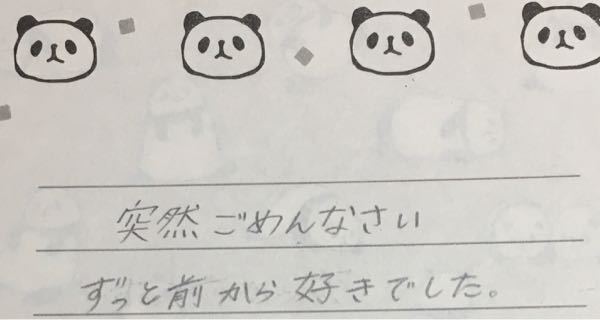 突然ごめんなさい
ずっと前から好きでした。